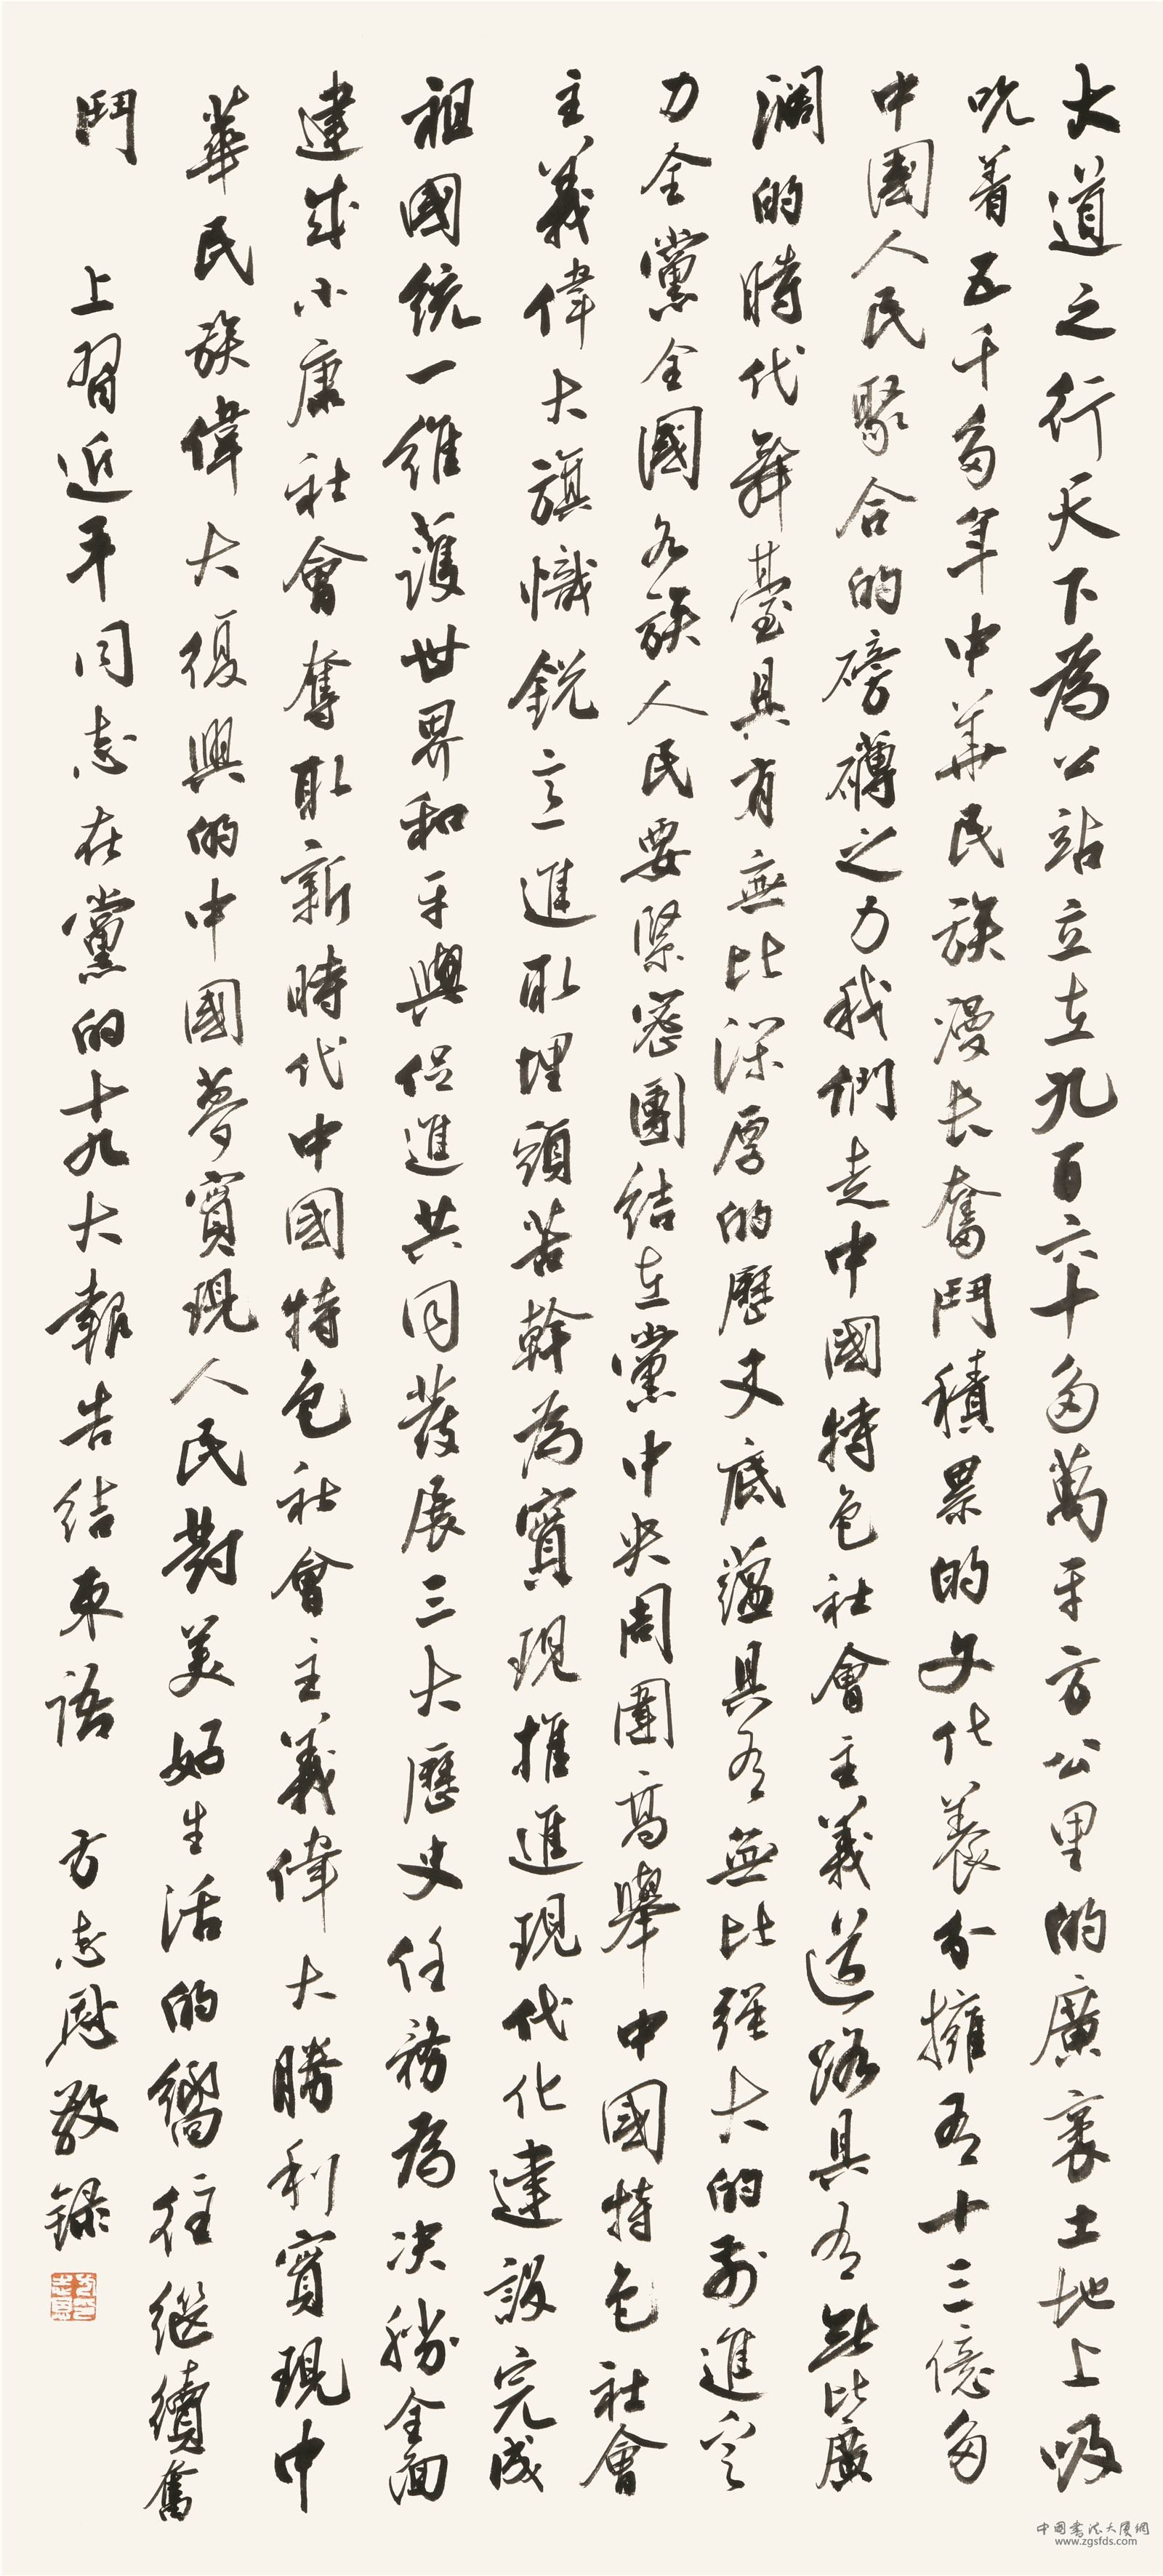 大道之行天下為公站立在九百六十多萬平方公里的廣袤土地上吸
吮着五千多年中華民族漫長奮鬥積累的文化養分擁有十三億多
中國人民聚合的磅礴之力我們走中國特色社會主義道路具有無比廣
闊的時代舞臺具有無比深厚的歷史底蘊具有無比強大的前進定
力全黨全國各族人民要緊密團結在黨中央周圍高舉中國特色社會
主義偉大旗幟銳意進取埋頭苦幹為實現推進現代化建設完成
祖國統一維護世界和平與促進共同發展三大歷史任務為決勝全面
建成小康社會奪取新時代中國特色社會主義偉大勝利實現中
華民族偉大復興的中國夢實現人民對美好生活的嚮往繼續奮
鬥 上習近平同志在黨的十九大報告結束語 方志恩敬錄
中國書法大廈網
www.zgsfds.com